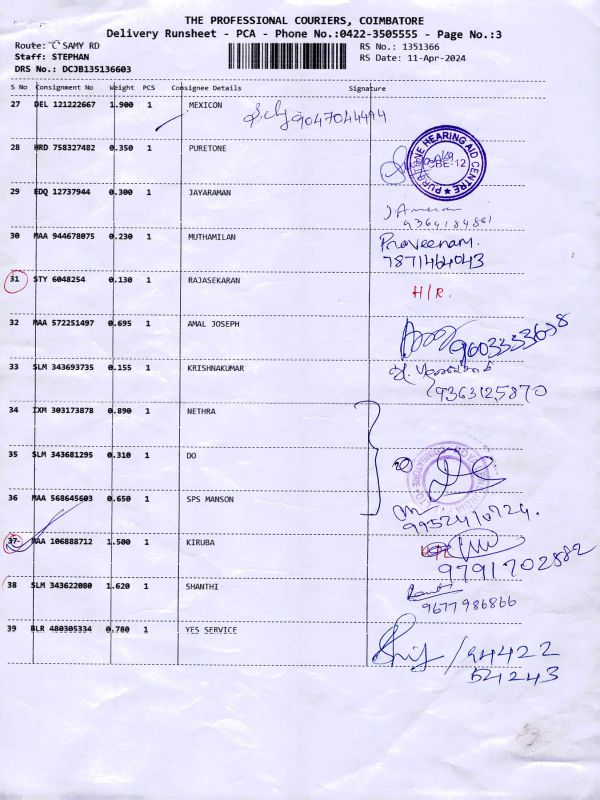 THE PROFESSIONAL COURIERS, COIMBATORE
Delivery Runsheet - PCA - Phone No.:0422-3505555 - Page No.:3
Route: C SAMY RD RS No.: 1351366
Staff: STEPHAN RS Date: 11-Apr-2024
DRS No.: DCJB135136603
S No Consignment No Weight PCS Consignee Details Signature
27 DEL 121222667 1.900 1 MEXICON 9047044494
28 HRD 758327482 0.350 1 PURETONE
PURETONE HEARING AID CENTRE
CBE-12
29 EDQ 12737944 0.300 1 JAYARAMAN
9364184881
30 MAA 944678075 0.230 1 MUTHAMILAN Praveenam.
7871464043
31 STY 6048254 0.130 1 RAJASEKARAN H/R.
32 MAA 572251497 0.695 1 AMAL JOSEPH 9603333698
33 SLM 343693735 0.155 1 KRISHNAKUMAR
9363125870
34 IXM 303173878 0.890 1 NETHRA
35 SLM 343681295 0.310 1 DO
36 MAA 568645603 0.650 1 SPS MANSON
9952410724.
37 MAA 106888712 1.500 1 KIRUBA
9791702882
38 SLM 343622080 1.620 1 SHANTHI
9677986866
39 BLR 480305334 0.780 1 YES SERVICE
/94422
521243